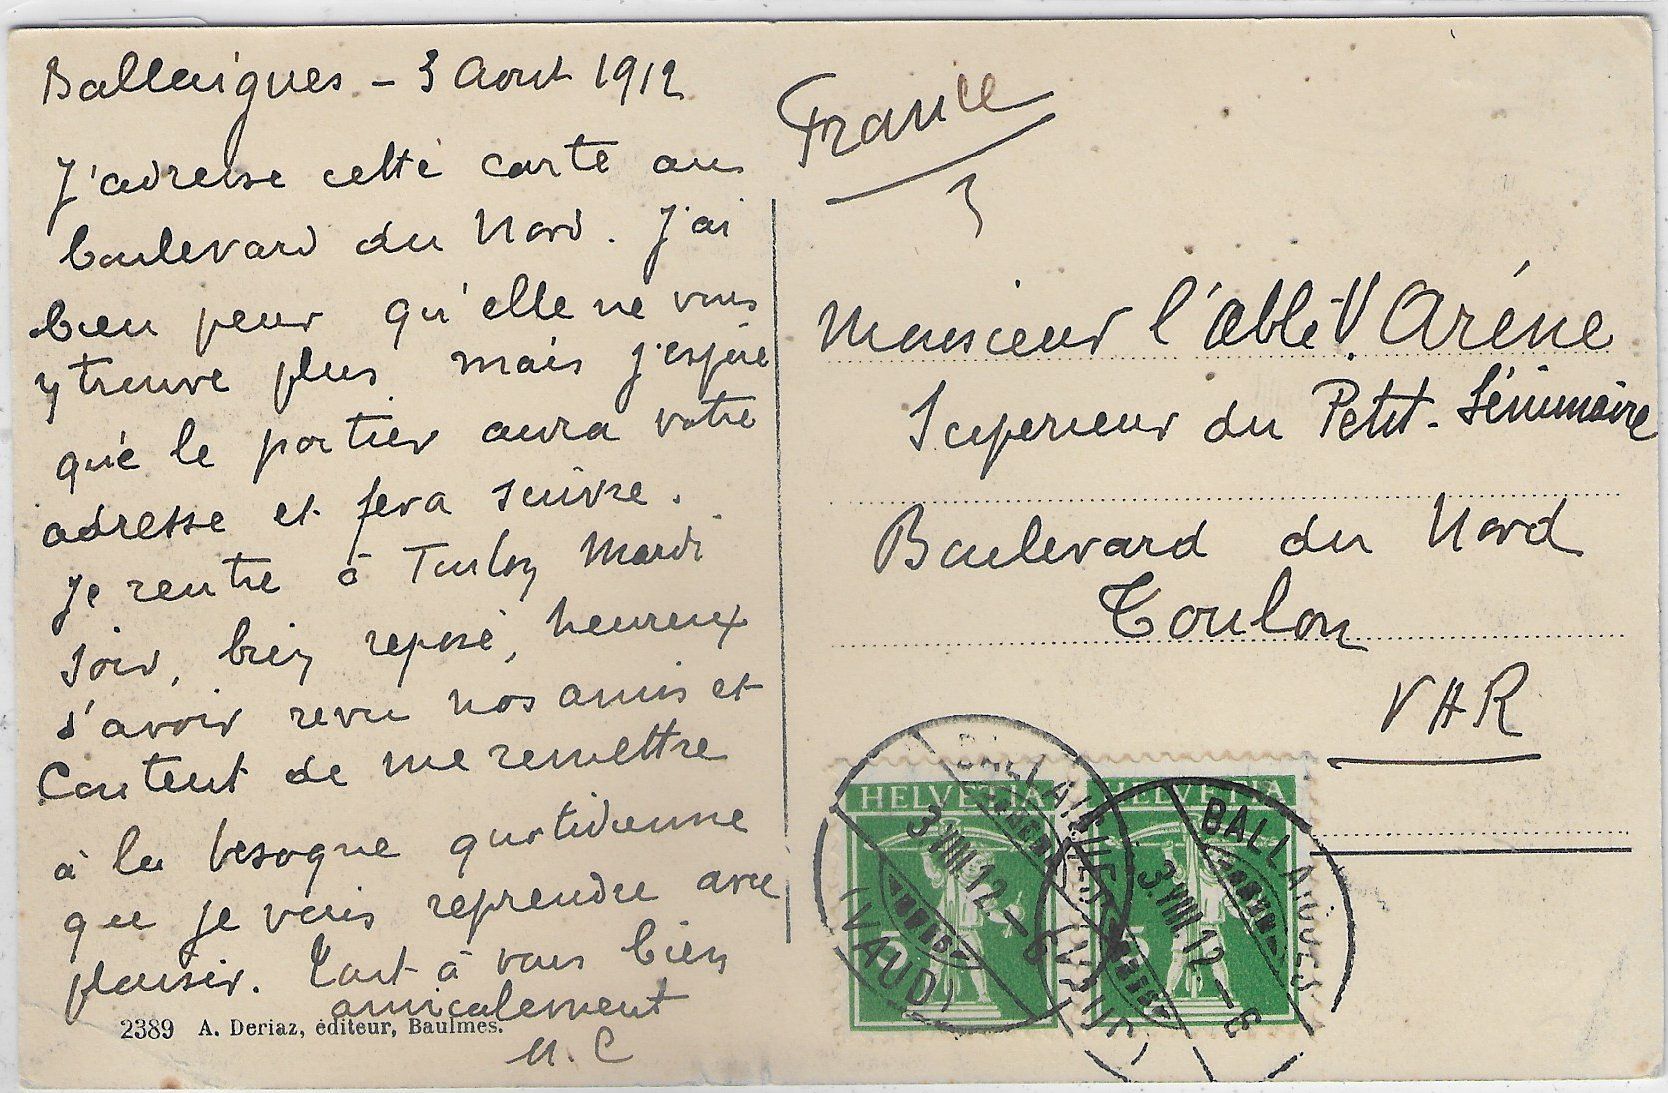 Ballaigues - 3 Aout 1912
J'adresse cette carte au
boulevard du Nord. J'ai
bien peur qu'elle ne vous
y trouve plus mais j'espère
que le portier aura votre
adresse et fera suivre.
Je rentre à Toulon Mardi
soir, bien reposé, heureux
d'avoir revu nos amis et
Content de me remettre
à la besogne quotidienne
que je vais reprendre avec
plaisir. Tout à vous bien
amicalement
M. C
2389 A. Deriaz, éditeur, Baulmes.
France
Monsieur l'abbé V. Arène
Superieur du Petit-Séminaire
Boulevard du Nord
Toulon
VAR
HELVETIA
HELVETIA
BALLAIGUES
3.VIII.12.-6
(VAUD)
BALLAIGUES
3.VIII.12.-6
(VAUD)
5
5